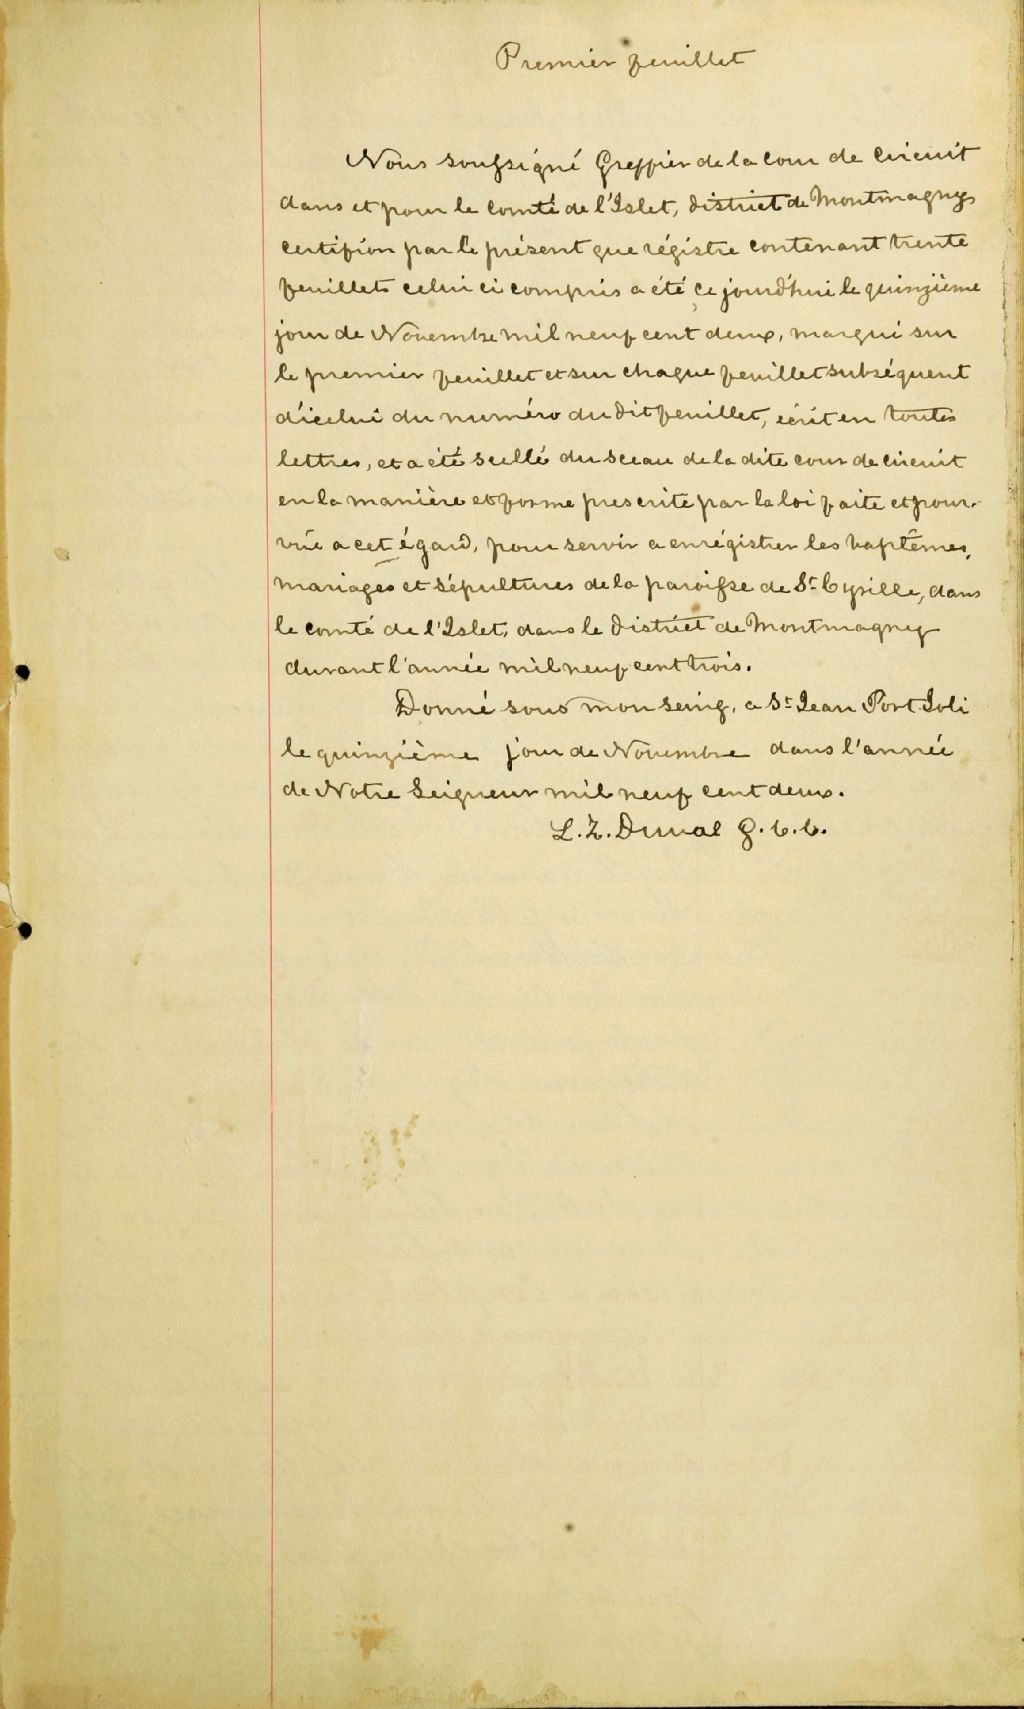 Premier feuillet
Nous soussigné Greffier de la cour de circuit
dans et pour le comté de l'Islet, district de Montmagny
certifion par le présent que régistre contenant trente
feuillets celui ci compris a été ce jourd'hui le quinzième
jour de Novembre mil neuf cent deux, marqué sur
le premier feuillet et sur chaque feuillet subséquent
d'icelui du numéro du dit feuillet, écrit en toutes
lettres, et a été scellé du sceau de la dite cour de circuit
en la manière et forme prescrite par la loi faite et pour-
vue a cet égard, pour servir a enrégistrer les baptêmes,
mariages et sépultures de la paroisse de St. Cyrille, dans
le comté de l'Islet, dans le district de Montmagny
durant l'année mil neuf cent trois.
Donné sous mon seing, a St. Jean Port Joli
le quinzième jour de Novembre dans l'année
de Notre Seigneur mil neuf cent deux.
L. Z. Duval G. C. C.